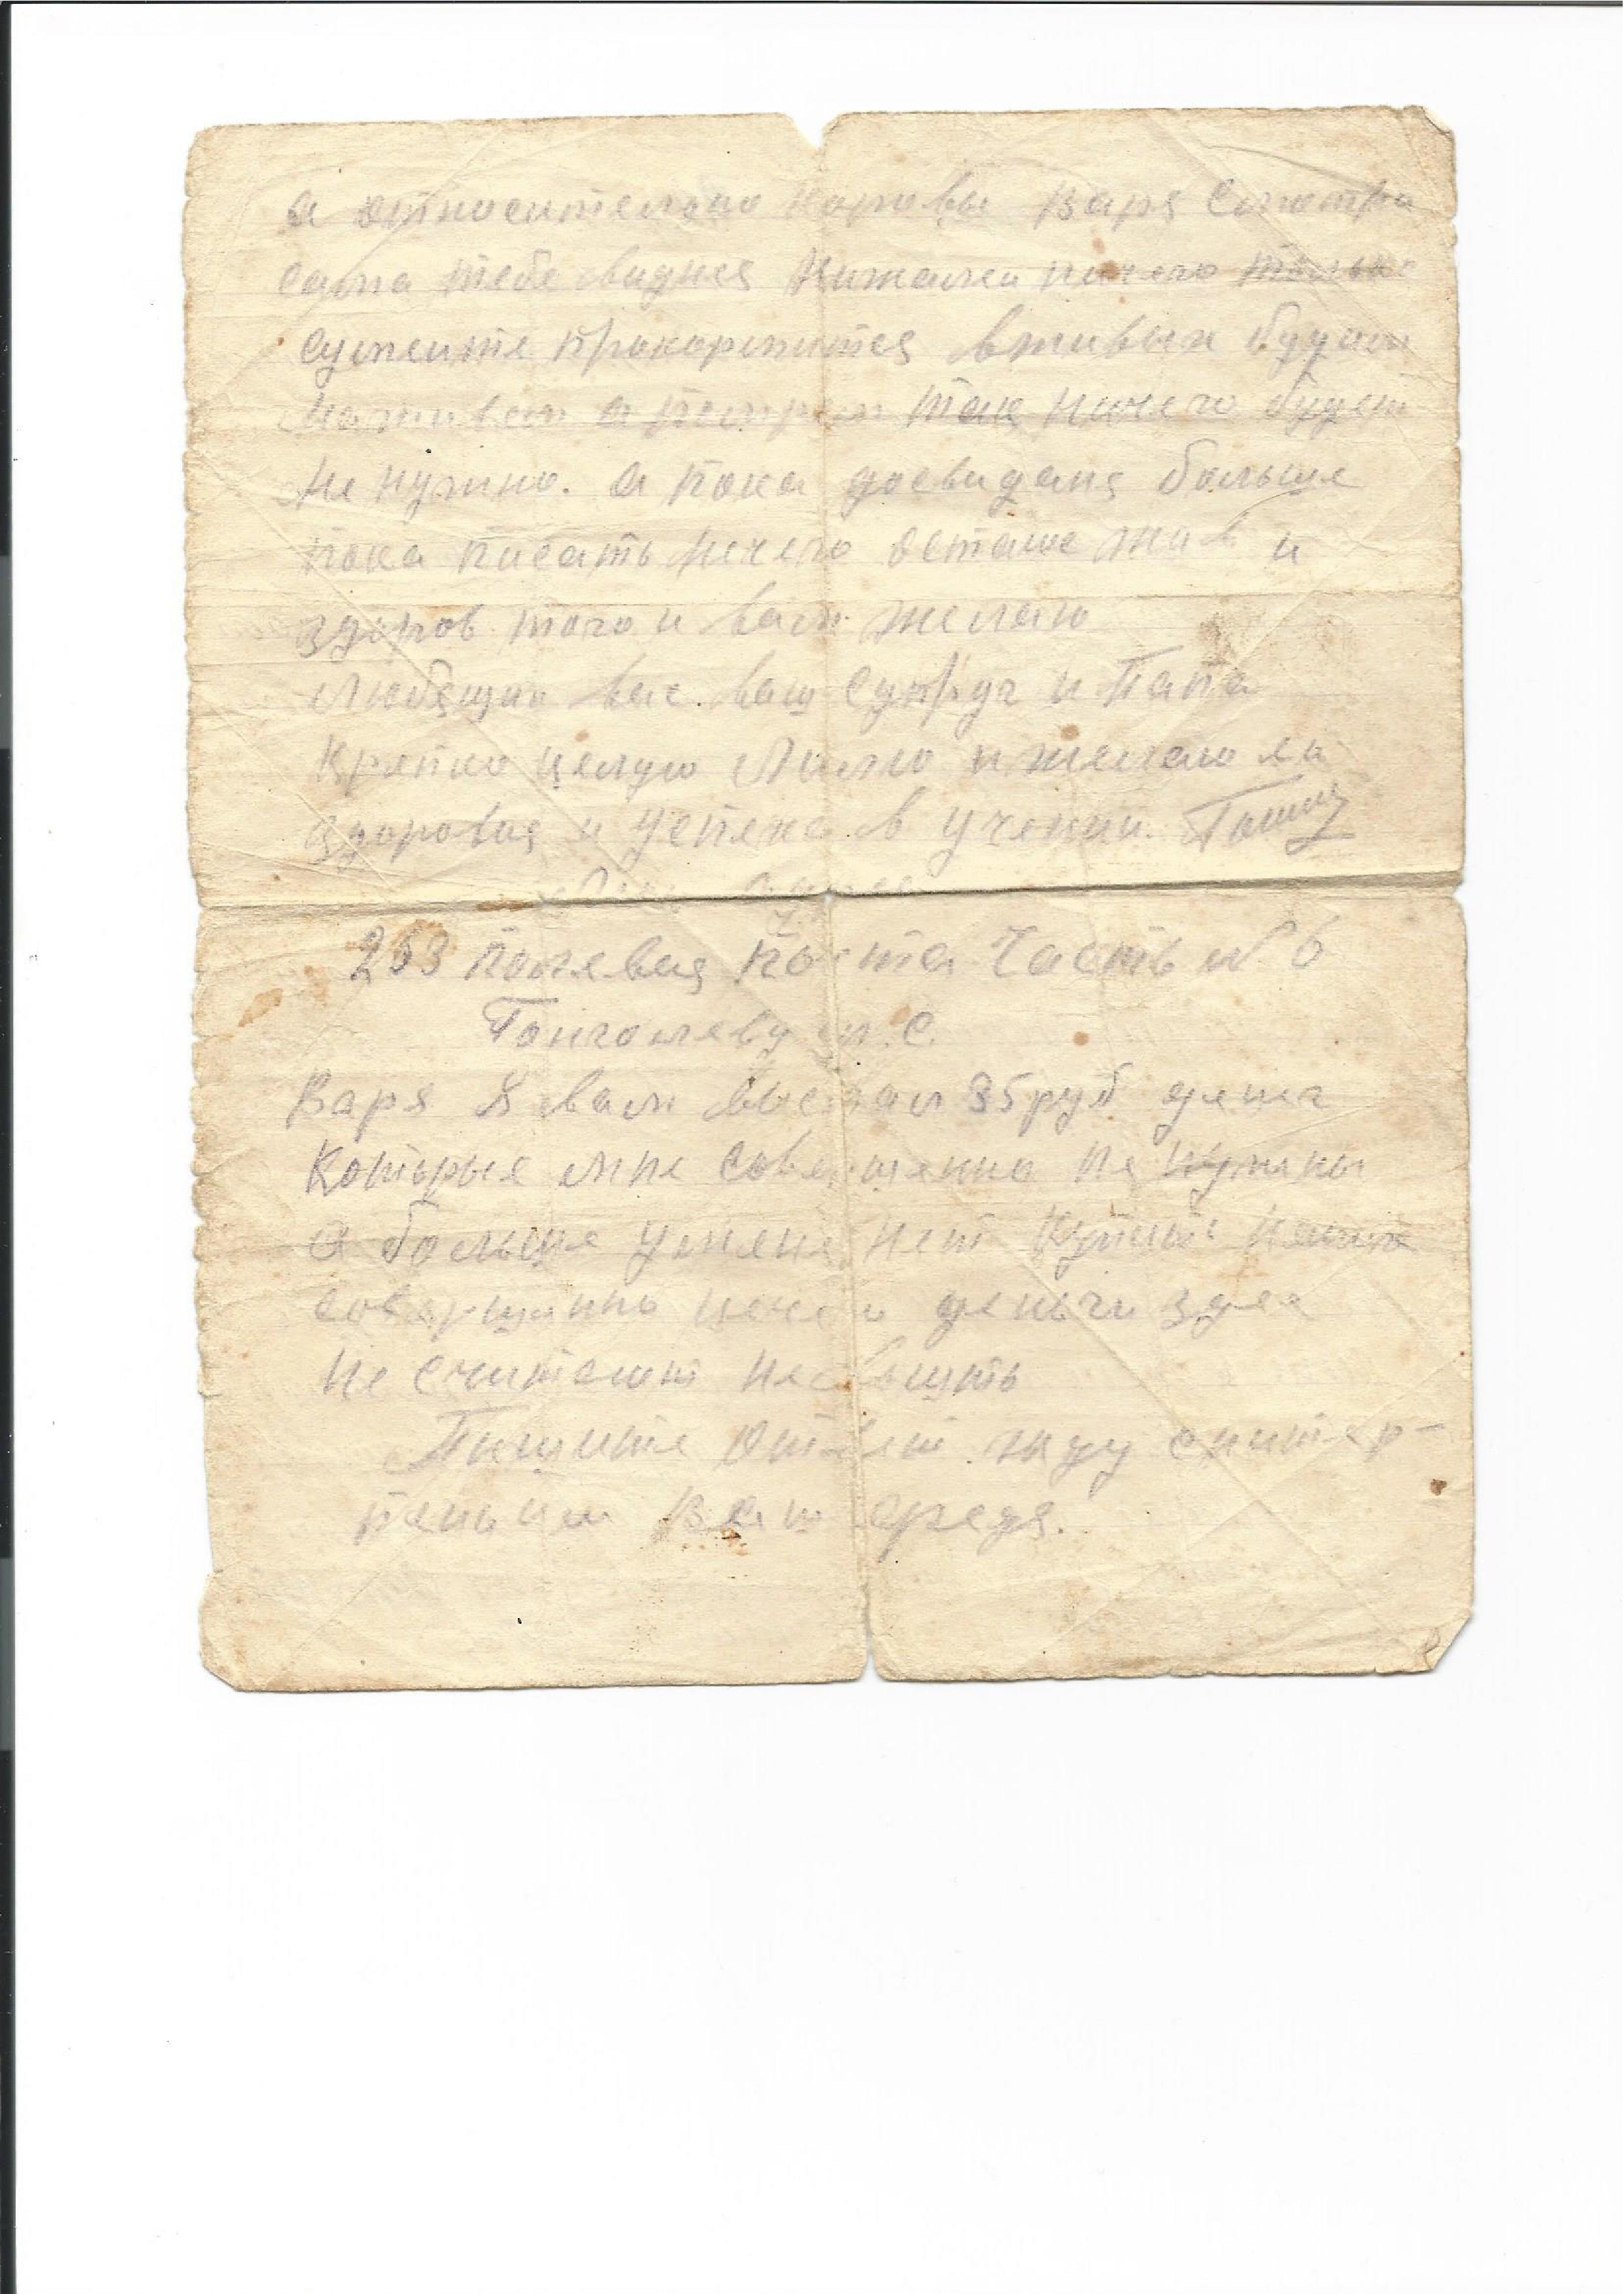 а относительно коровы Варя смотри
сама тебе виднея ничего только
сумеите прокормится вживых будим
наживем а помрем так ничего будет
не нужно. а пока досвиданя больше
пока писать нечего остаюс жив и
здоров того и вам желаю
Любящий вас ваш супруг и Папа
крепко целую Милю и желаю ей
здоровия и успеха в учении.
253 полевая почта Часть № 6
Варя Я вам выслал 35 руб денег
которые мне совершенно не нужны
а больше уменя нет купить
совершенно нечего деньги здес
не считают
Пишите ответ жду снитер-
пеньем Ваш